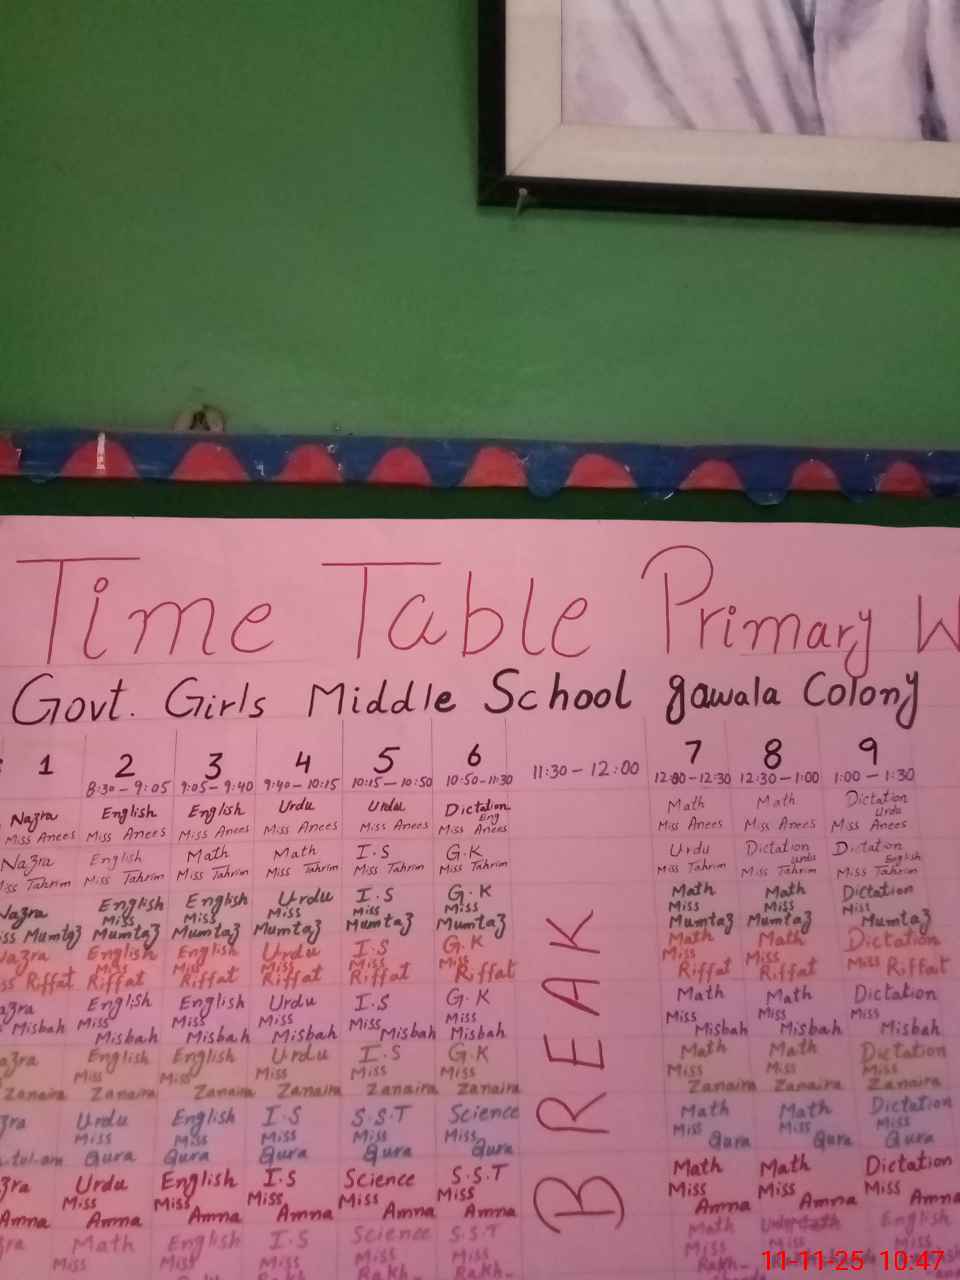 Time Table Primary W
Govt. Girls Middle School gawala Colony
1 2 3 4 5 6 7 8 9
8:30 - 9:05 9:05 - 9:40 9:40 - 10:15 10:15 - 10:50 10:50 - 11:30 11:30 - 12:00 12:00 - 12:30 12:30 - 1:00 1:00 - 1:30
Nazra English English Urdu Urdu Dictation Eng Math Math Dictation Urdu
Miss Anees Miss Anees Miss Anees Miss Anees Miss Anees Miss Anees Miss Anees Miss Anees Miss Anees
Nazra English Math Math I.S G.K Urdu Dictation urdu Dictation English
Miss Tahrim Miss Tahrim Miss Tahrim Miss Tahrim Miss Tahrim Miss Tahrim Miss Tahrim Miss Tahrim Miss Tahrim
Nazra English English Urdu I.S G.K Math Math Dictation
ss Mumtaz Miss Mumtaz Miss Mumtaz Miss Mumtaz Miss Mumtaz Miss Mumtaz Miss Mumtaz Miss Mumtaz Miss Mumtaz
Nazra English English Urdu I.S G.K Math Math Dictation
ss Riffat Miss Riffat Miss Riffat Miss Riffat Miss Riffat Miss Riffat Miss Riffat Miss Riffat Miss Riffat
azra English English Urdu I.S G.K Math Math Dictation
Misbah Miss Misbah Miss Misbah Miss Misbah Miss Misbah Miss Misbah Miss Misbah Miss Misbah Miss Misbah
azra English English Urdu I.S G.K Math Math Dictation
Zanaira Miss Zanaira Miss Zanaira Miss Zanaira Miss Zanaira Miss Zanaira Miss Zanaira Miss Zanaira Miss Zanaira
zra Urdu English I.S S.S.T Science Math Math Dictation
tul-an Miss Qura Miss Qura Miss Qura Miss Qura Miss Qura Miss Qura Miss Qura Miss Qura
zra Urdu English I.S Science S.S.T Math Math Dictation
Amna Miss Amna Miss Amna Miss Amna Miss Amna Miss Amna Miss Amna Miss Amna Miss Amna
ra Math English I.S Science S.S.T Math English
Miss Miss Miss Miss Rakh- Miss Rakh- Miss Rakh- Miss
BREAK
11-11-25 10:47